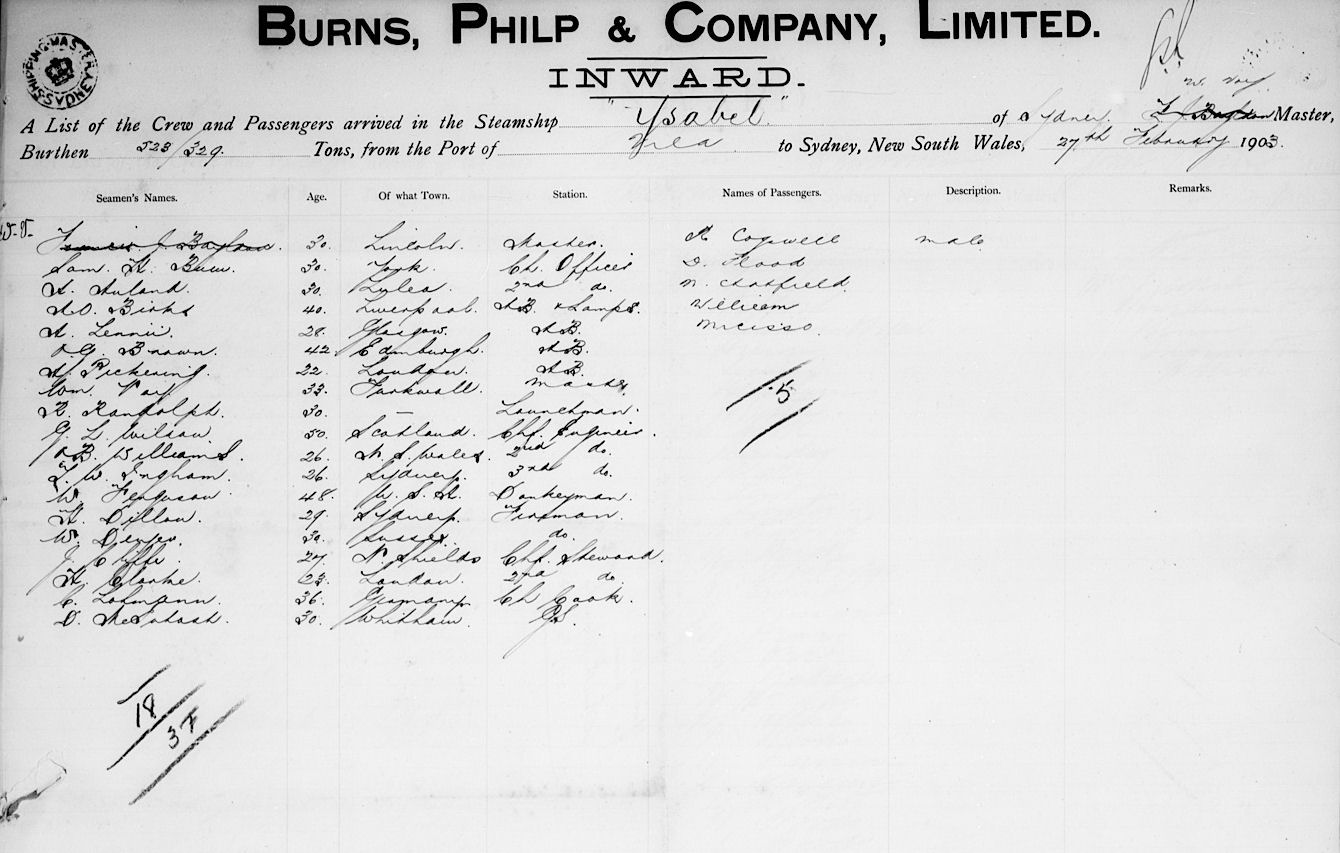 BURNS, PHILP & COMPANY, LIMITED.
SHIPPING MASTER SYDNEY
INWARD.
W. Vary
A List of the Crew and Passengers arrived in the Steamship "Ysabel" of Sydney. Master,
Burthen 523/329. Tons, from the Port of to Sydney, New South Wales, 27th February 1903.
Seamen's Names. Age. Of what Town. Station. Names of Passengers. Description. Remarks.
Francis J. 30. Lincoln. Master. Cogswell male
Sam. 30. York. Ch. Officer D. Flood
30. 2nd do. Chatfield.
Birks 40. Liverpool. AB. & Lamps. William
A. Lennii. 28. Glasgow. AB. Micisso.
G. Brown. 42 Edinburgh. AB.
A. Pickering. 22. London. AB.
Wm. 33. Master.
R. Randolph. 30. — Launchman.
G. L. Wilson 50. Scotland. Chf. Engineer.
B. Williams. 26. N. S. Wales. 2nd do.
W. Ingham. 26. Sydney. 3rd do.
W. Ferguson 48. U. S. A. Donkeyman.
A. Dillon. 29. Sydney. Fireman.
W. 30. Sussex. do.
J. Cliffe. 27. N Shields Chf. Steward.
A. Clarke. 23. London. 2nd do.
C. Lohmann. 36. Germany Ch Cook.
D. McIntosh. 30. GS.
5
18
37